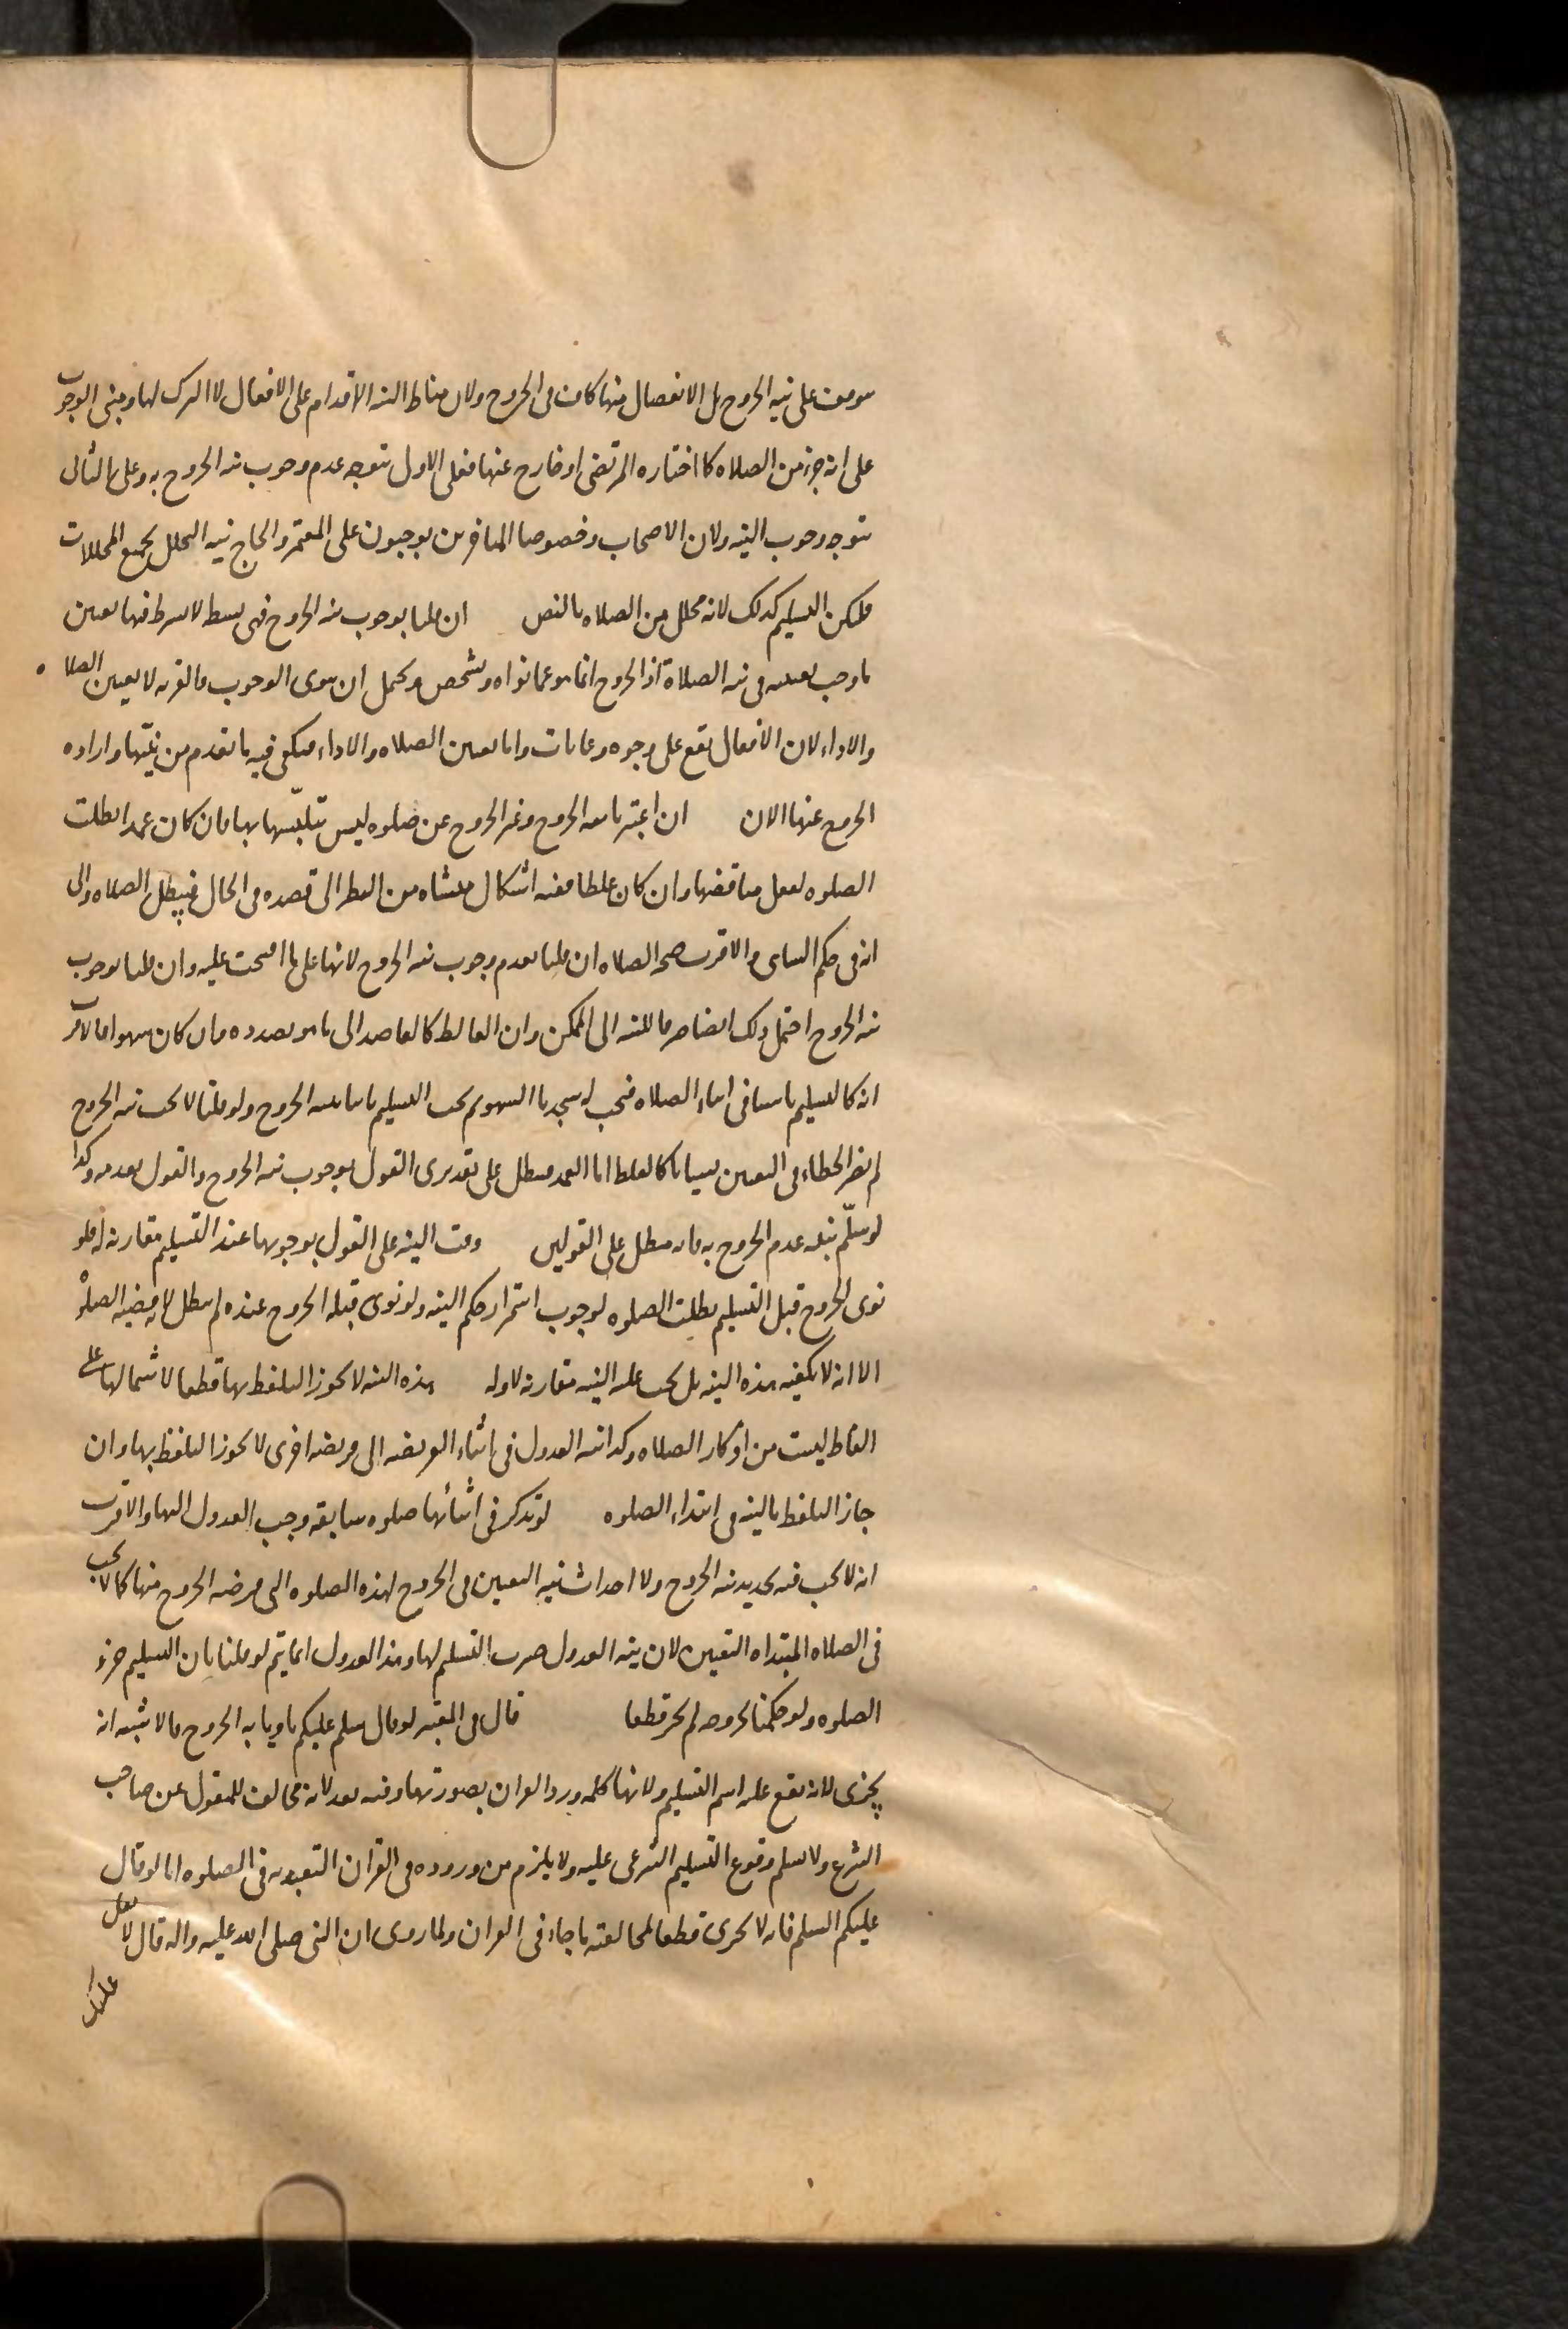 يتوقف على نية الخروج بل الانفصال منها كاف فى الخروج ولان مناط النية الاقدام على الافعال لا الترك لها ومبنى الوجوب
على انه جزء من الصلاه كما اختاره المرتضى او خارج عنها فعلى الاول يتوجه عدم وجوب نية الخروج به وعلى الثانى
يتوجه وجوب النية ولان الاصحاب وخصوصا المتاخرين يوجبون على المعتمر والحاج نية التحلل بجميع المحللات
فليكن التسليم كذلك لانه محلل من الصلاه بالنص ان قلنا بوجوب نية الخروج فهى بسيطة لا يشترط فيها تعيين
ما وجب تعيينه فى نية الصلاة اذ الخروج انما هو عما نواه وشخص ويحتمل ان ينوى الوجوب والقربة لا تعيين الصلاه
والاداء لان الافعال يقع على وجوه وغايات واما تعيين الصلاه والاداء فيكفى فيه ما تقدم من نيتها وارادة
الخروج عنها الان ان اعتبرنا نية الخروج وغير الخروج عن صلوه ليس متلبسا بها فان كان عمدا بطلت
الصلوه لفعل مناقضها وان كان غلطا ففيه اشكال منشاه من النظر الى قصده فى الحال فيبطل الصلاه والى
انه فى حكم الساهى والاقرب صحة الصلاه ان قلنا بعدم وجوب نية الخروج لانها على ما افتتحت عليه وان قلنا بوجوب
نية الخروج احتمل ذلك ايضا صرفا للنية الى الممكن وان الغالط كالقاصد الى ما هو بصدده وان كان سهوا فالاقرب
انه كالتسليم ناسيا فى اثناء الصلاه فيجب له سجدتا السهو ثم يجب التسليم ثانيا بنية الخروج ولو قلنا لا يجب نية الخروج
لم يضر الخطاء فى التعيين نسيانا كالغلط اما العمد فيبطل على تقديرى القول بوجوب نية الخروج والقول بعدمه وكذا
لو سلم بنية عدم الخروج به فانه يبطل على القولين وقت النية على القول بوجوبها عند التسليم مقارنة له فلو
نوى الخروج قبل التسليم بطلت الصلوه لوجوب استمرار حكم النية ولو نوى قبله الخروج عنده لم يبطل لانه قضية الصلوة
الا انه لا يكفيه هذه النية بل يجب عليه النية مقارنة لاوله هذه النية لا يجوز التلفظ بها قطعا لاشتمالها على
الفاظ ليست من اذكار الصلاه وكذا نية العدول فى اثناء الفريضه الى فريضه اخرى لا يجوز التلفظ بها وان
جاز التلفظ بالنية فى ابتداء الصلوه لو تذكر فى اثنائها صلوه سابقه وجب العدول اليها والاقرب
انه لا يجب فيه تجديد نية الخروج ولا احداث نية التعيين فى الخروج لهذه الصلوه التى فرضه الخروج منها كما لا يجب
فى الصلاه المبتداه التعيين لان نية العدول صرت التسليم لها وهذا العدول انما يتم لو قلنا بان التسليم جزء
الصلوه ولو حكمنا بخروجه لم يجز قطعا قال فى المعتبر لو قال سلم عليكم ناويا به الخروج فالاشبه انه
يجزى لانه يقع عليه اسم التسليم ولانها كلمه ورد القران بصورتها وفيه بعد لانه مخالف للمنقول عن صاحب
الشرع ولا نسلم وقوع التسليم الشرعى عليه ولا يلزم من وروده فى القران التعبد به فى الصلوه اما لو قال
عليكم السلم فانه لا يجزى قطعا لمخالفته ما جاء فى القران ولما روى ان النبى صلى الله عليه واله قال لا تقل
عليك